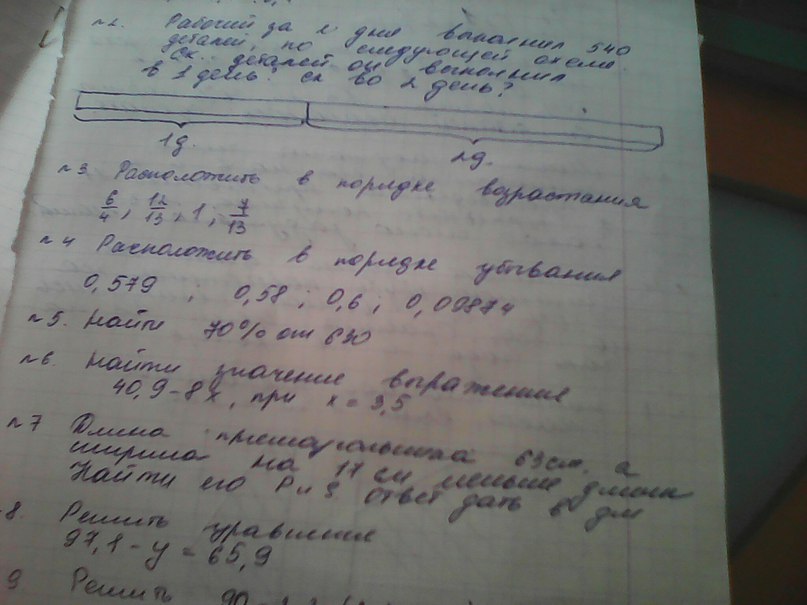 №2. Рабочий за 2 дня выполнил 540
деталей, по следующей схеме.
Ск. деталей он выполнил
в 1 день? ск во 2 день?
1д. 2д.
№3 Расположить в порядке возрастания
6/4, 12/13, 1, 7/13
№4 Расположить в порядке убывания
0,579 ; 0,58 ; 0,6 ; 0,00874
№5. Найти 70% от 630
№6. Найти значение выражения
40,9-8x, при x = 3,5
№7 Длина прямоугольника 63 см, а
ширина на 17 см меньше длины
Найти его P и S ответ дать в дм
8. Решить уравнение
97,1 - y = 65,9
9 Решить